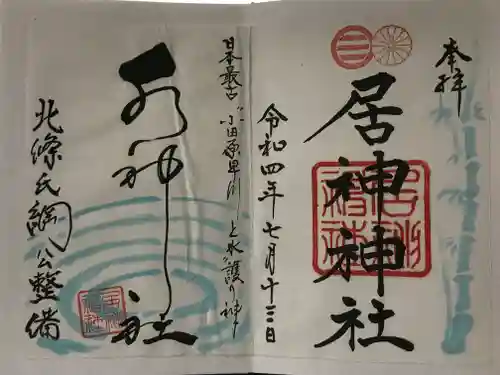 奉拝
居神神社
令和四年七月十三日
日本最古 小田原早川上水を護り神
水神社
北條氏綱公整備